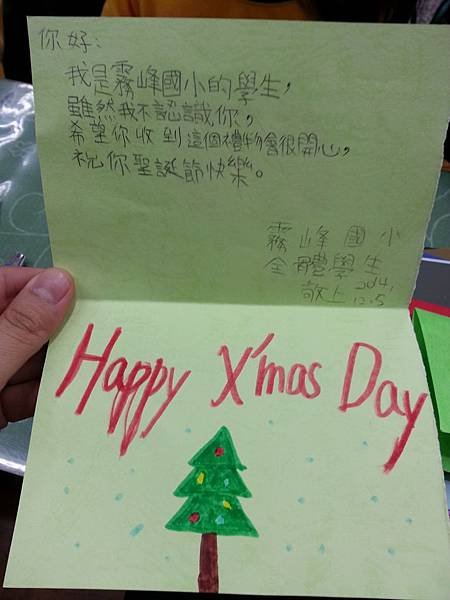 你好：
我是霧峰國小的學生，
雖然我不認識你，
希望你收到這個禮物會很開心，
祝你聖誕節快樂。
霧峰國小
全體學生
敬上 2014,
12.5
Happy X'mas Day